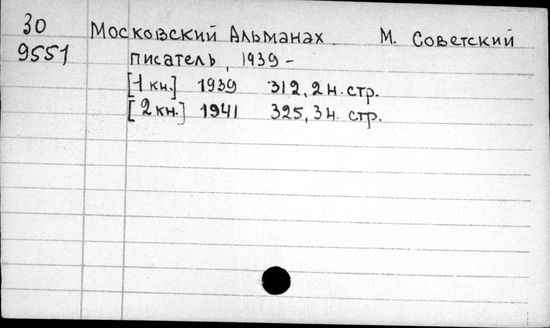 30 Московский Альманах. М. Советский
9551 писатель, 1939 –
[1 кн.] 1939 312, 2 н. стр.
[2 кн.] 1941 325, 3 н. стр.